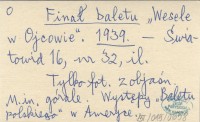 O Finał baletu „Wesele
w Ojcowie". 1939. — Świa-
towid 16, nr 32, il.
Tylko fot. z objaśn.
M.in. górale i Występy „Baletu
polskiego" w Ameryce.